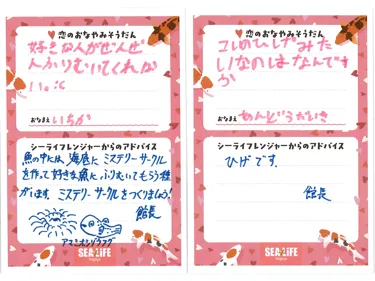 恋のおなやみそうだん
好きな人がぜんぜ
んふりむいてくれな
い。
おなまえ いちか
シーライフレンジャーからのアドバイス
魚の中には、海底にミステリーサークル
を作って好きな魚にふりむいてもらう種
がいます。ミステリーサークルをつくりましょう!
館長
アマミホシゾラフグ
SEA LIFE
恋のおなやみそうだん
コレのひげみた
いなのはなんです
か
おなまえ あんどうだいき
シーライフレンジャーからのアドバイス
ひげです。
館長
SEA LIFE